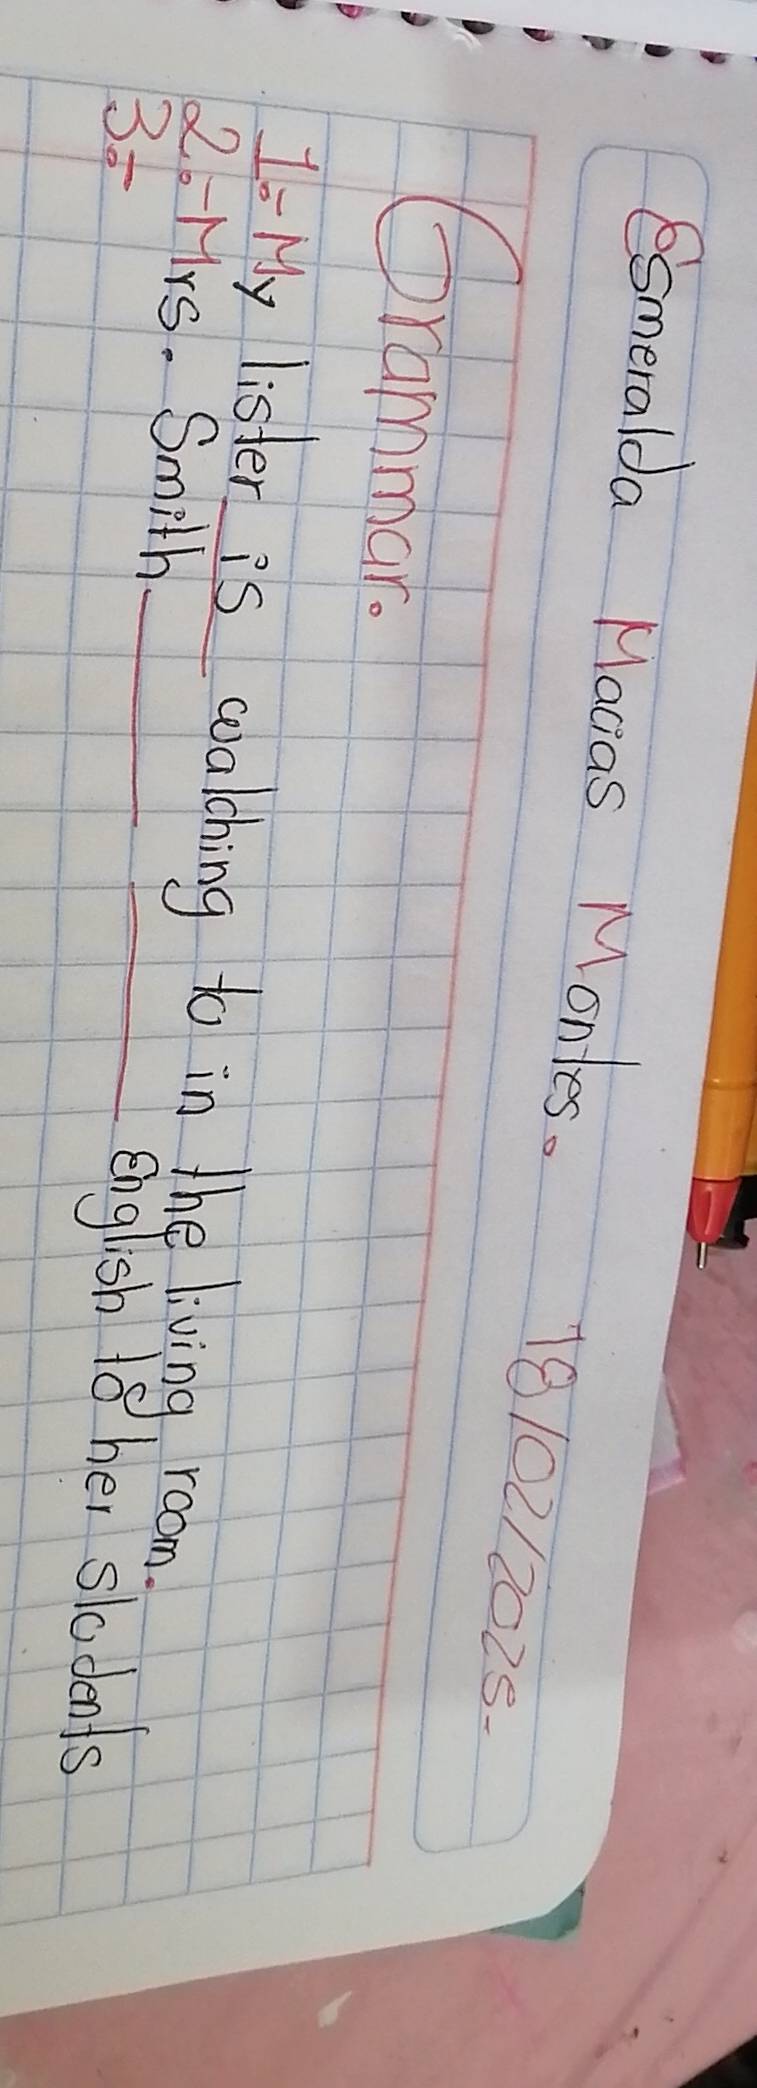 Esmeralda Macias Montes. 18/02/2025.-
Grammar.
1.- My lister is walching to in the living room.
2.- Mrs. Smith ______ ______ English to her Students
3.-